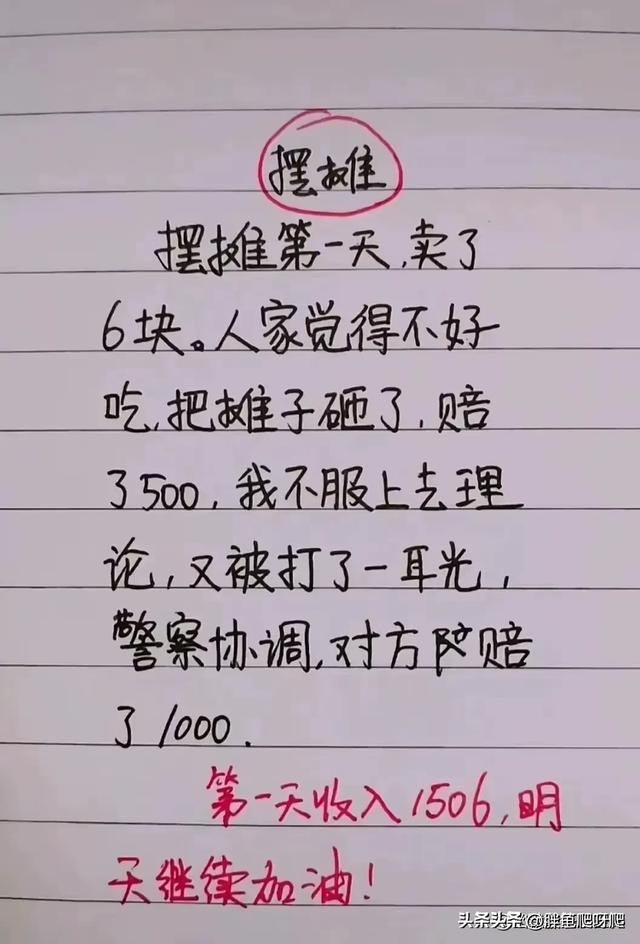 摆摊
摆摊第一天,卖了
6块。人家觉得不好
吃,把摊子砸了,赔
了500,我不服上去理
论,又被打了一耳光,
警察协调,对方陪赔
了1000.
第一天收入1506,明
天继续加油!
头条头条@胖笔爬呀爬